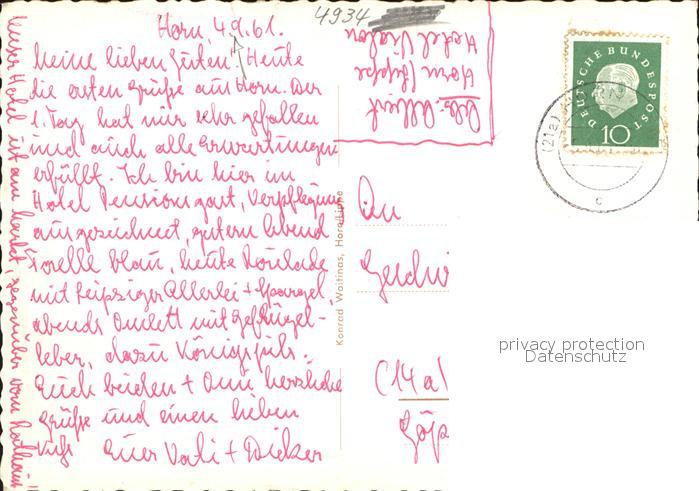 4934
Horn, 4.9.61.
Meine lieben Guten! Heute
die ersten Grüße aus Horn. Der
1. Tag hat mir sehr gefallen
und auch alle Erwartungen
erfüllt. Ich bin hier im
Hotel Pensionsgast, Verpflegung
ausgezeichnet, gestern Abend
Forelle blau, heute Roulade
mit Leipziger Allerlei + Spargel,
abends Omlett mit Geflügel-
leber, dazu Königspils.
Euch beiden + Omi herzliche
Grüße und einen lieben
Kuß Euer Vati + Dicker
Unser Hotel ist am Markt, gegenüber vom Rathaus
Abs.
Horn / Lippe
Hotel
Konrad Waitinas, Horn-Lippe
An
Geschwi
(14a)
Göp
DEUTSCHE BUNDESPOST
10
(21a)
c
privacy protection
Datenschutz